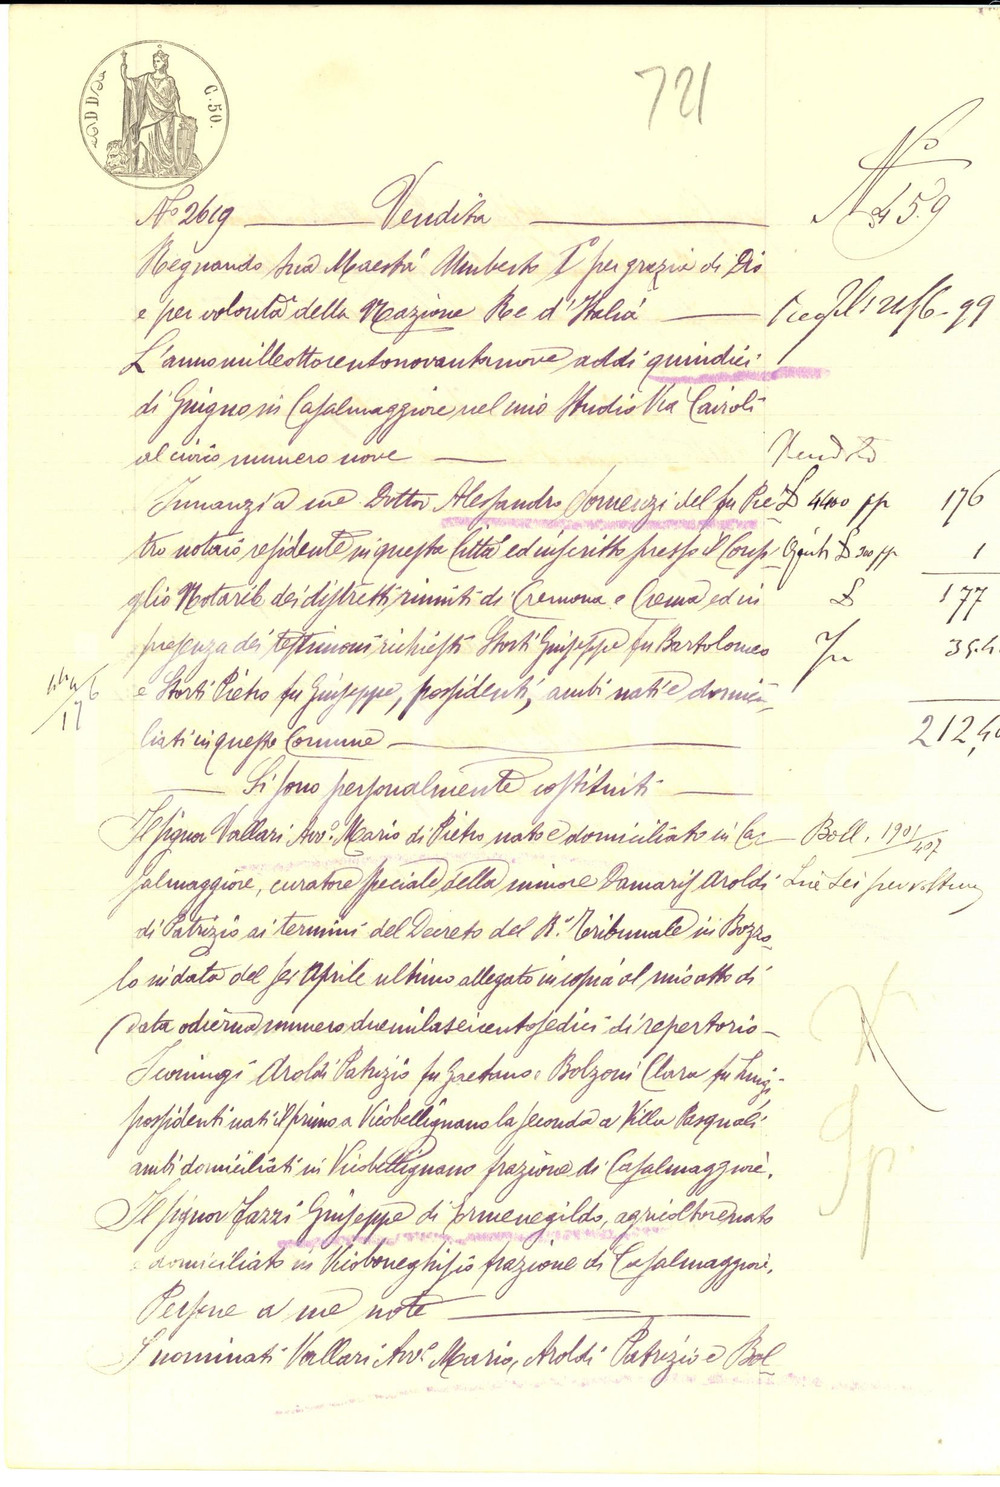 721
C. 50.
N° 459
N° 2619 Vendita
Regnando Sua Maestà Umberto I° per grazia di Dio
e per volontà della Nazione Re d'Italia
L'anno milleottocentonovantanove addì quindici
di Giugno in Casalmaggiore nel mio Studio Via Cairoli
al civico numero nove
Vendita
Innanzi a me Dottor Alessandro Tomenzi del fu Pie
£ 4400 176
tro notaio residente in questa Città ed inscritto presso il Consi
£ 300 1
glio Notarile dei distretti riuniti di Cremona e Crema ed in
£ 177
presenza dei testimoni richiesti Storti Giuseppe fu Bartolomeo
35.4
e Storti Pietro fu Giuseppe, possidenti, ambi nati e domici
17
liati in questo Comune
212,40
Si sono personalmente costituiti
Il signor Vallari Avv.° Mario di Pietro nato e domiciliato in Ca
Boll. 1901/407
salmaggiore, curatore speciale della minore Damaris Aroldi
Lire sei per voltura
di Patrizio ai termini del Decreto del R.° Tribunale in Bozzo
lo in data del sei Aprile ultimo allegato in copia al mio atto di
data odierna numero duemilaseicentosedici di repertorio
I coniugi Aroldi Patrizio fu Gaetano e Bolzoni Clara fu Luigi
possidenti nati il primo a Vicobellignano la seconda a Villa Pasquali
ambi domiciliati in Vicobellignano frazione di Casalmaggiore.
Il signor Fazzi Giuseppe di Ermenegildo, agricoltore nato
e domiciliato in Vicoboneghisio frazione di Casalmaggiore.
Persone a me note
I nominati Vallari Avv.° Mario, Aroldi Patrizio e Bol